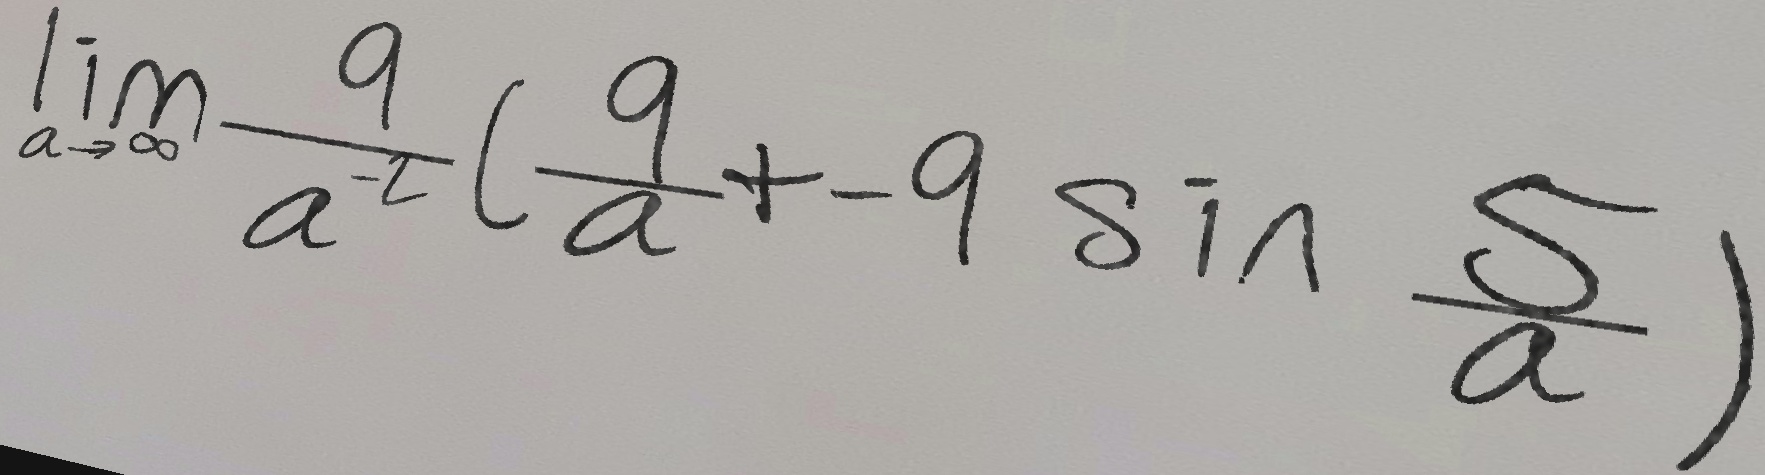 \lim_{a \to \infty} \frac{9}{a^{-2}} \left( \frac{9}{a} + -9 \sin \frac{5}{a} \right)